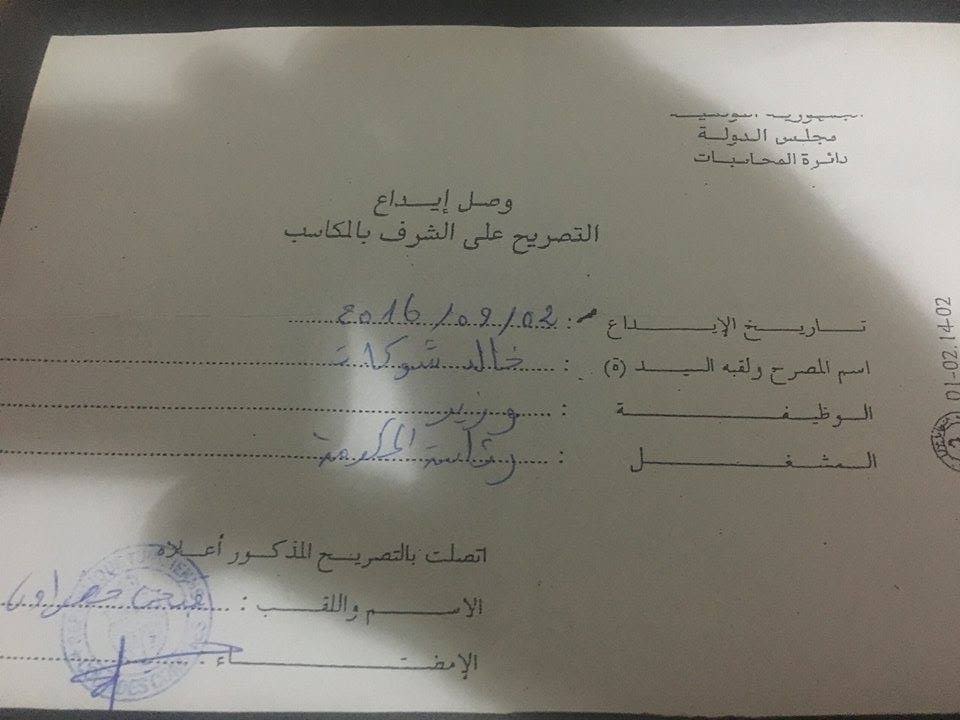 الجمهورية التونسية
مجلس الدولة
دائرة المحاسبات
وصل إيداع
التصريح على الشرف بالمكاسب
تاريخ الإيداع : 2016/09/02
اسم المصرح ولقبه السيد (ة) : خالد شوكات
الوظيفة : وزير
المشغل : رئاسة الحكومة
اتصلت بالتصريح المذكور أعلاه
الاسم واللقب :
الإمضاء
01-02.14-02